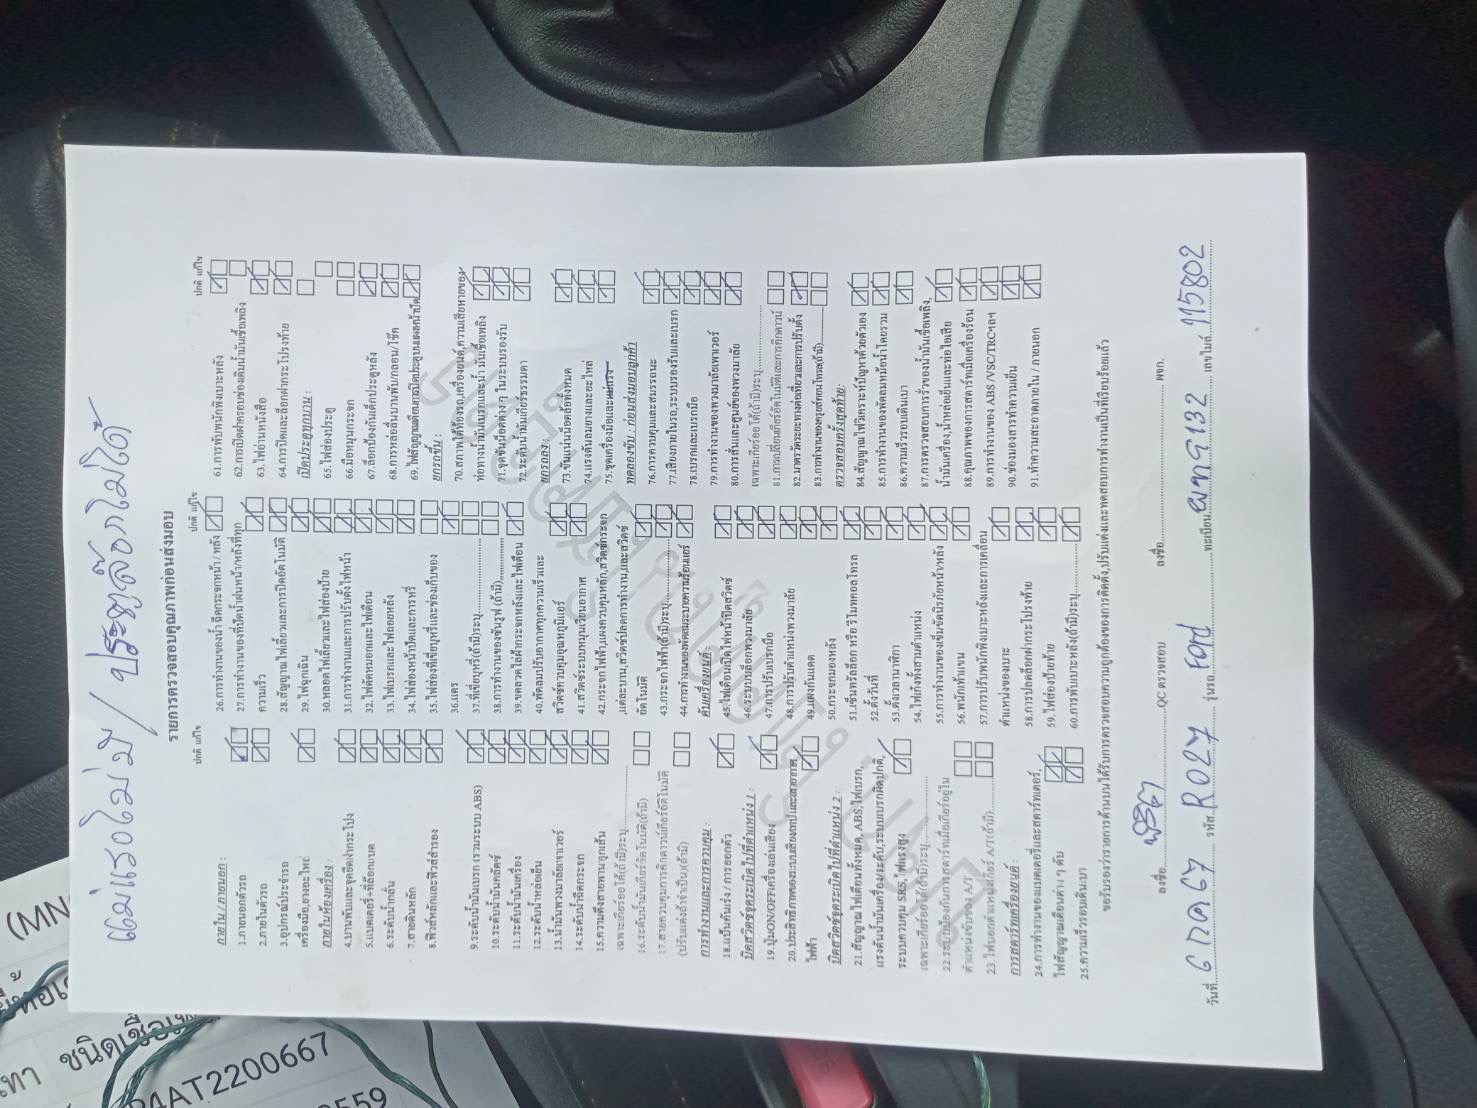 แม่แรงไม่มี / ประตูล๊อกไม่ได้
รายการตรวจสอบคุณภาพก่อนส่งมอบ
ปกติ แก้ไข
ภายใน / ภายนอก :
1.ภายนอกตัวรถ
2.ภายในตัวรถ
3.อุปกรณ์ประจำรถ
เครื่องมือ,ยางอะไหล่
ภายในห้องเครื่อง :
4.บานพับและจุดยึดฝากระโปง
5.แบตเตอรี่+ที่ล็อกแบต
6.ระดับน้ำกลั่น
7.สายดินหลัก
8.ฟิวส์หลักและฟิวส์สำรอง
9.ระดับน้ำมันเบรก (รวมระบบ ABS)
10.ระดับน้ำมันคลัตช์
11.ระดับน้ำมันเครื่อง
12.ระดับน้ำหล่อเย็น
13.น้ำมันพวงมาลัยเพาเวอร์
14.ระดับน้ำฉีดกระจก
15.ความตึงสายพานทุกเส้น
เฉพาะเกียร์ออโต้(ถ้ามี)ระบุ
16.ระดับน้ำมันเกียร์อัตโนมัติ(ถ้ามี)
17.สายควบคุมการคิกดาวน์เกียร์อัติโนมัติ
(ปรับแต่งถ้าจำเป็น)(ถ้ามี)
การทำงานและการควบคุม :
18.แป้นคันเร่ง / การออกตัว
บิดสวิตช์จุดระเบิดไปที่ตำแหน่ง 1 :
19.ปุ่มON/OFFเครื่องเล่นเสียง
20.ประสิทธิภาพของระบบเสียงเทปและสายอากาศ
ไฟฟ้า
บิดสวิตช์จุดระเบิดไปที่ตำแหน่ง 2 :
21.สัญญาณไฟเตือนทั้งหมด, ABS,ไฟเบรก,
แรงดันน้ำมันเครื่อง/ระดับ,ระบบเบรกผิดปกติ,
ระบบควบคุม SRS,ไฟแรงสูง
เฉพาะเกียร์ออโต้(ถ้ามี)ระบุ
22.ระบบป้องกันการสตาร์ทเมื่อเกียร์อยู่ใน
ตำแหน่งขับของ A/T
23.ไฟบอกตำแหน่งเกียร์ A/T(ถ้ามี)
การสตาร์ทเครื่องยนต์ :
24.การทำงานของแบตเตอรี่และสตาร์ทเตอร์,
ไฟสัญญาณเตือนต่าง ๆ ดับ
25.ความเร็วรอบเดินเบา
ปกติ แก้ไข
26.การทำงานของน้ำฉีดกระจกหน้า / หลัง
27.การทำงานของที่ปัดน้ำฝนหน้า/หลังที่ทุก
ความเร็ว
28.สัญญาณไฟเลี้ยวและการปิดอัตโนมัติ
29.ไฟฉุกเฉิน
30.หลอดไฟเลี้ยวและไฟส่องป้าย
31.การทำงานและการปรับตั้งไฟหน้า
32.ไฟตัดหมอกและไฟเตือน
33.ไฟเบรกและไฟถอยหลัง
34.ไฟส่องหน้าปัดและการหรี่
35.ไฟส่องที่เขี่ยบุหรี่และช่องเก็บของ
36.แตร
37.ที่เขี่ยบุหรี่(ถ้ามี)ระบุ
38.การทำงานของซันรูฟ (ถ้ามี)
39.ขดลวดไล่ฝ้ากระจกหลังและไฟเตือน
40.พัดลมปรับอากาศทุกความเร็วและ
สวิตช์ควบคุมอุณหภูมิแอร์
41.สวิตช์ระบบหมุนเวียนอากาศ
42.กระจกไฟฟ้า,แผงควบคุมหลัก,สวิตช์กระจก
,แต่ละบาน,สวิตช์ปลดการทำงาน,และสวิตช์
อัตโนมัติ
43.กระจกไฟฟ้า(ถ้ามี)ระบุ
44.การทำงานของพัดลมระบายความร้อนแอร์
ดับเครื่องยนต์ :
45.ไฟเตือนเปิดไฟหน้าปิดสวิตช์
46.ระบบบล็อกพวงมาลัย
47.การปรับเบรกมือ
48.การปรับตำแหน่งพวงมาลัย
49.แผงกันแดด
50.กระจกมองหลัง
51.เซ็นทรัลล็อก หรือ รีโมทคอลโทรล
52.ตั้งวันที่
53.ตั้งเวลานาฬิกา
54.ไฟเก๋งทั้งสามตำแหน่ง
55.การทำงานของเข็มขัดนิรภัยหน้า/หลัง
56.พนักเท้าแขน
57.การปรับพนักพิงเบาะหลังและการเคลื่อน
ตำแหน่งของเบาะ
58.การปลดล็อกฝากระโปรงท้าย
59.ไฟส่องป้ายท้าย
60.การพับเบาะหลัง(ถ้ามี)ระบุ
ปกติ แก้ไข
61.การพับพนักพิงเบาะหลัง
62.การเปิดฝาครอบช่องเติมน้ำมันเชื้อเพลิง
63.ไฟอ่านหนังสือ
64.การปิดและล็อกฝากระโปรงท้าย
เปิดประตูทุกบาน :
65.ไฟส่องประตู
66.มือหมุนกระจก
67.ล็อกป้องกันเด็กประตูหลัง
68.การหล่อลื่นบานพับ/กลอน/โช๊ค
69.ไฟสัญญาณเตือนการปิดประตูบนแผงหน้าปัด
ยกรถขึ้น :
70.สภาพใต้ท้องรถ,เครื่องยนต์,ความเสียหายของ
ท่อทางน้ำมันเบรกและน้ำมันเชื้อเพลิง
71.จุดขันน็อตต่าง ๆ ในระบบรองรับ
72.ระดับน้ำมันเกียร์ธรรมดา
ยกรถลง :
73.ขันแน่นน็อตล้อทั้งหมด
74.แรงดันลมยางและอะไหล่
75.ชุดเครื่องมือและแม่แรง
ทดลองขับ : ก่อนส่งมอบลูกค้า
76.การควบคุมและสมรรถนะ
77.เสียงภายในรถ,ระบบรองรับและเบรก
78.เบรกและเบรกมือ
79.การทำงานของพวงมาลัยเพาเวอร์
80.การสั่นและศูนย์ของพวงมาลัย
เฉพาะเกียร์ออโต้(ถ้ามี)ระบุ
81.การเปลี่ยนเกียร์อัตโนมัติและการคิกดาวน์
82.มาตรวัดระยะทางต่อเที่ยวและการปรับตั้ง
83.การทำงานของครูยส์คอนโทรล(ถ้ามี)
ตรวจสอบครั้งสุดท้าย:
84.สัญญาณไฟวิเคราะห์ปัญหาด้วยตัวเอง
85.การทำงานของพัดลมหม้อน้ำโดยรวม
86.ความเร็วรอบเดินเบา
87.การตรวจสอบการรั่วของน้ำมันเชื้อเพลิง,
น้ำมันเครื่อง,น้ำหล่อเย็นและท่อไอเสีย
88.คุณภาพของการสตาร์ทเมื่อเครื่องร้อน
89.การทำงานของ ABS /VSC/TRCฯลฯ
90.ช่องมองสารทำความเย็น
91.ทำความสะอาดภายใน / ภายนอก
ขอรับรองว่ารายการด้านบนได้รับการตรวจสอบความถูกต้องของการติดตั้ง,ปรับแต่งและทดสอบการทำงานเป็นที่เรียบร้อยแล้ว
ลงชื่อ QC ตรวจสอบ ลงชื่อ ผจก.
วันที่ 6 กค 67 รหัส R027 รุ่นรถ Ford ทะเบียน 9132 เลขไมล์ 115802
(MN
ชนิดเชื้อ
4AT2200667
559